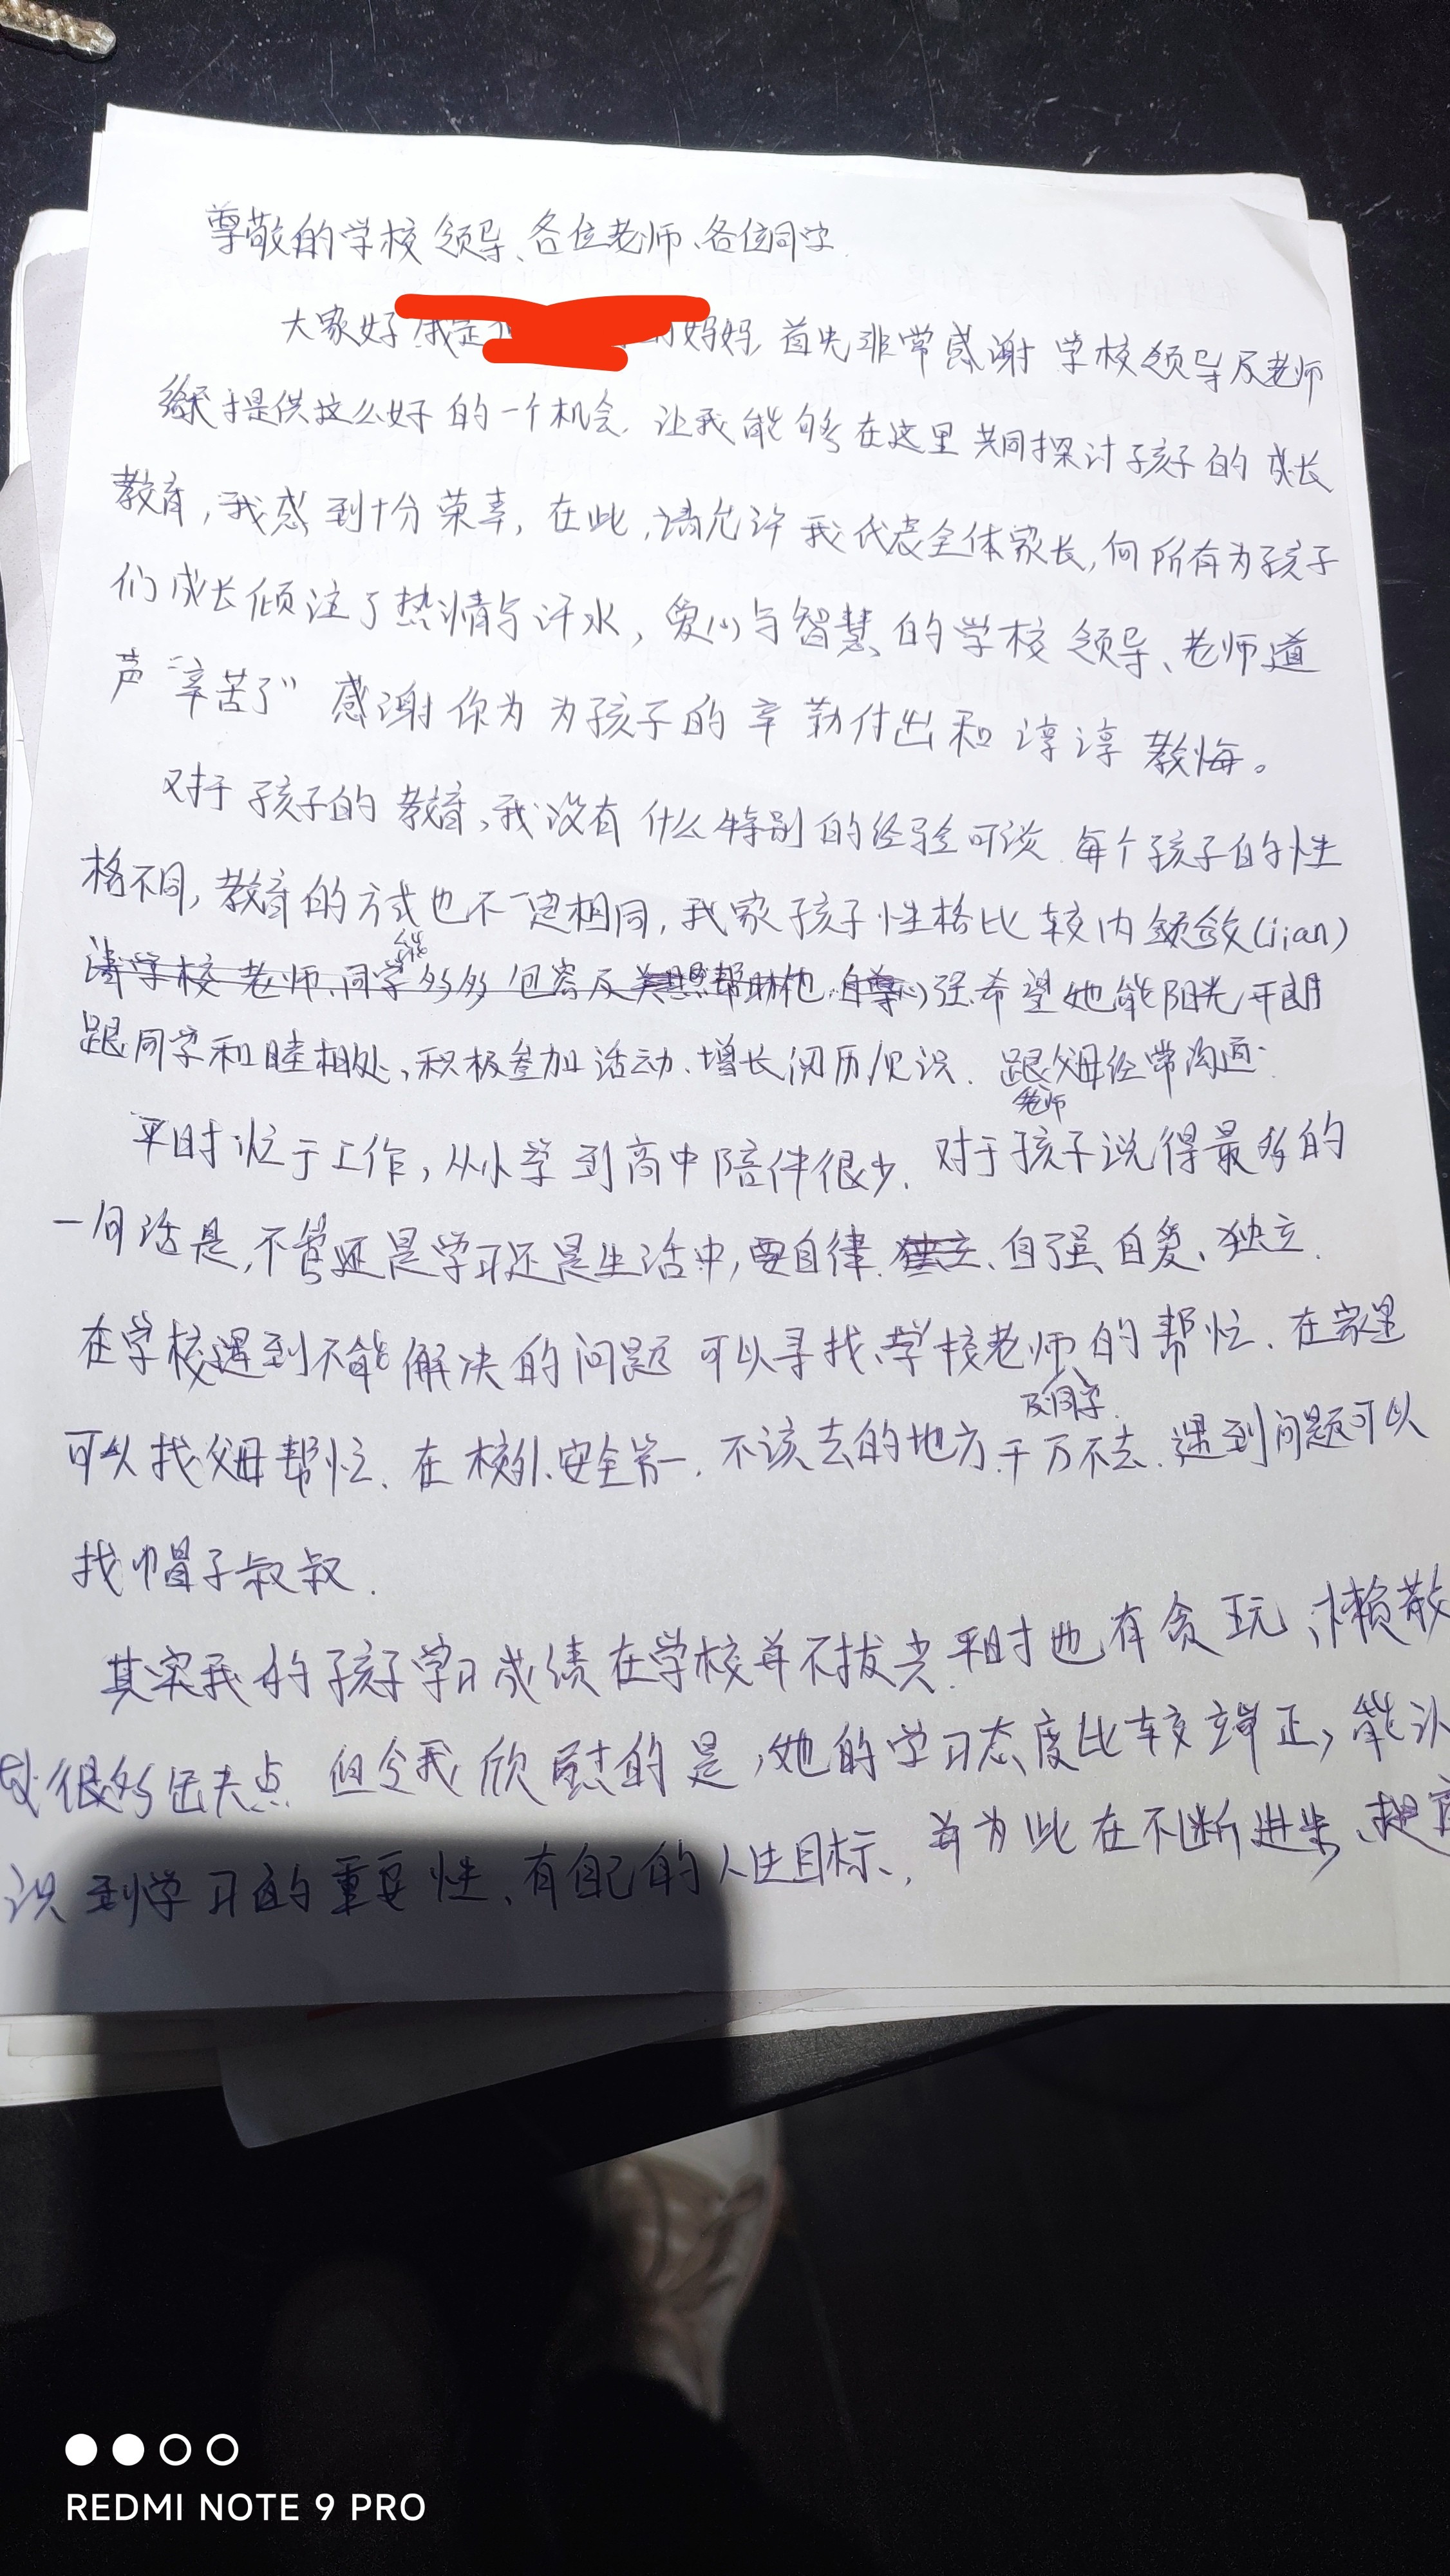 尊敬的学校领导、各位老师、各位同学.
大家好 我是 妈妈, 首先非常感谢学校领导及老师
给予提供这么好的一个机会. 让我能够在这里共同探讨孩子的成长
教育,我感到十分荣幸, 在此,请允许我代表全体家长,向所有为孩子
们成长倾注了热情与汗水, 爱心与智慧的学校领导、老师道
声“辛苦了” 感谢你为为孩子的辛勤付出和谆谆教悔。
对于孩子的教育,我没有什么特别的经验可谈. 每个孩子的性
格不同,教育的方式也不一定相同,我家孩子性格比较内敛(jian)
能
请学校老师、同学多多包容及 帮助他.自尊心强.希望她能阳光开朗
跟同学和睦相处,积极参加活动、增长阅历见识. 跟父母经常沟通.
老师
平时忙于工作, 从小学到高中陪伴很少. 对于孩子说得最多的
一句话是,不管还是学习还是生活中,要自律. 独立、自强、自爱、独立.
在学校遇到不能解决的问题可以寻找学校老师的帮忙. 在家里
及同学.
可以找父母帮忙. 在校外、安全第一. 不该去的地方千万不去. 遇到问题可以
找帽子叔叔.
其实我的孩子学习成绩在学校并不拔尖.平时也有贪玩、懒散
很多缺点. 但令我欣慰的是,她的学习态度比较端正,能认
识到学习的重要性、有自己的人生目标、,并为此在不断进步、提高
REDMI NOTE 9 PRO